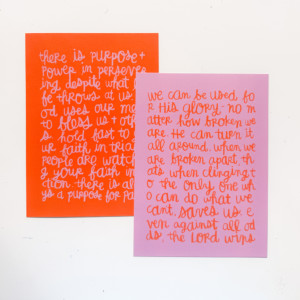 there is purpose +
power in persever
ing, despite what
he throws at us.
od uses our me
to bless us + oth
s hold fast to
ur faith in trial
people are watch
g your faith in
ction. there is al
ys a purpose for pa
we can be used fo
r His glory, no m
atter how broken we
are. He can turn it
all around, when we
are broken apart, th
ats when clinging t
o the only one wh
o can do what we
cant, saves us e
ven against all od
ds, the LORD wins